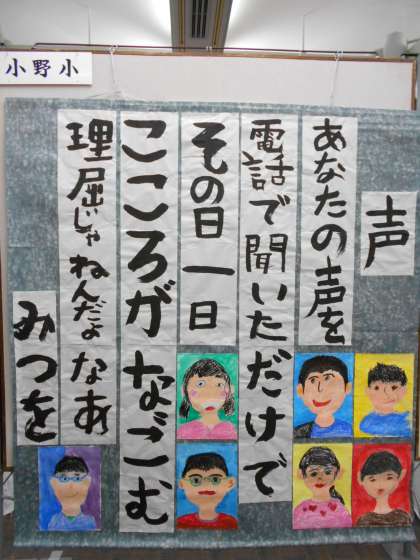 小野小
声
あなたの声を
電話で聞いただけで
その日一日
こころがなごむ
理屈じゃねんだよなあ
みつを